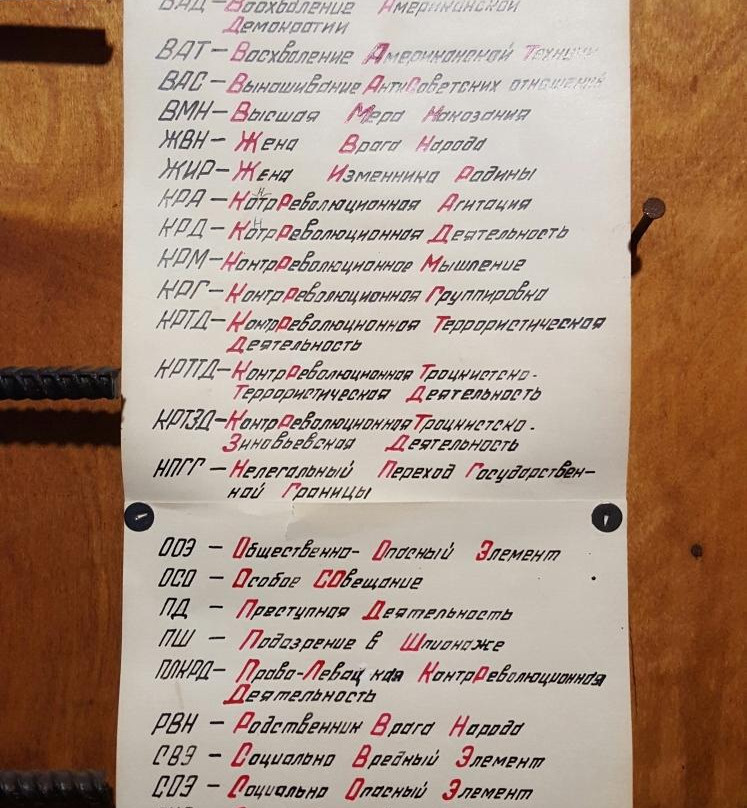 ВАД – Восхваление Американской
Демократии
ВАТ – Восхваление Американской Техники
ВАС – Вынашивание АнтиСоветских отношений
ВМН – Высшая Мера Наказания
ЖВН – Жена Врага Народа
ЖИР – Жена Изменника Родины
КРА – КонтрРеволюционная Агитация
КРД – КонтрРеволюционная Деятельность
КРМ – КонтрРеволюционное Мышление
КРГ – КонтрРеволюционная Группировка
КРТД – КонтрРеволюционная Террористическая
Деятельность
КРТТД – КонтрРеволюционная Троцкистско-
Террористическая Деятельность
КРТЗД – КонтрРеволюционная Троцкистско-
Зиновьевская Деятельность
НПГГ – Нелегальный Переход Государствен-
ной Границы
ООЭ – Общественно-Опасный Элемент
ОСО – Особое СОвещание
ПД – Преступная Деятельность
ПШ – Подозрение в Шпионаже
ПЛКРД – Право-Левацкая КонтрРеволюционная
Деятельность
РВН – Родственник Врага Народа
СВЭ – Социально Вредный Элемент
СОЭ – Социально Опасный Элемент